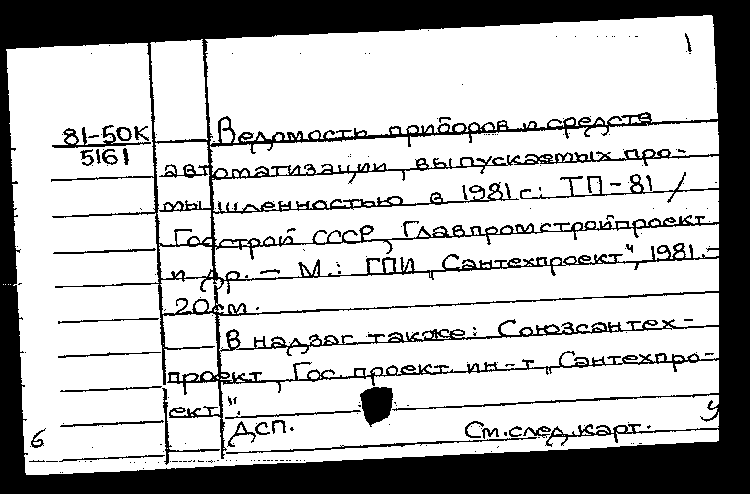 1
81-50К
5161
Ведомость приборов и средств
автоматизации, выпускаемых про-
мышленностью в 1981 г.: ТП-81 /
Госстрой СССР, Главпромстройпроект
и др. — М.: ГПИ „Сантехпроект", 1981.—
20см.
В надзаг также: Союзсантех-
проект, Гос. проект. ин-т „Сантехпро-
ект".
ДСП.
См. след. карт.
У
6